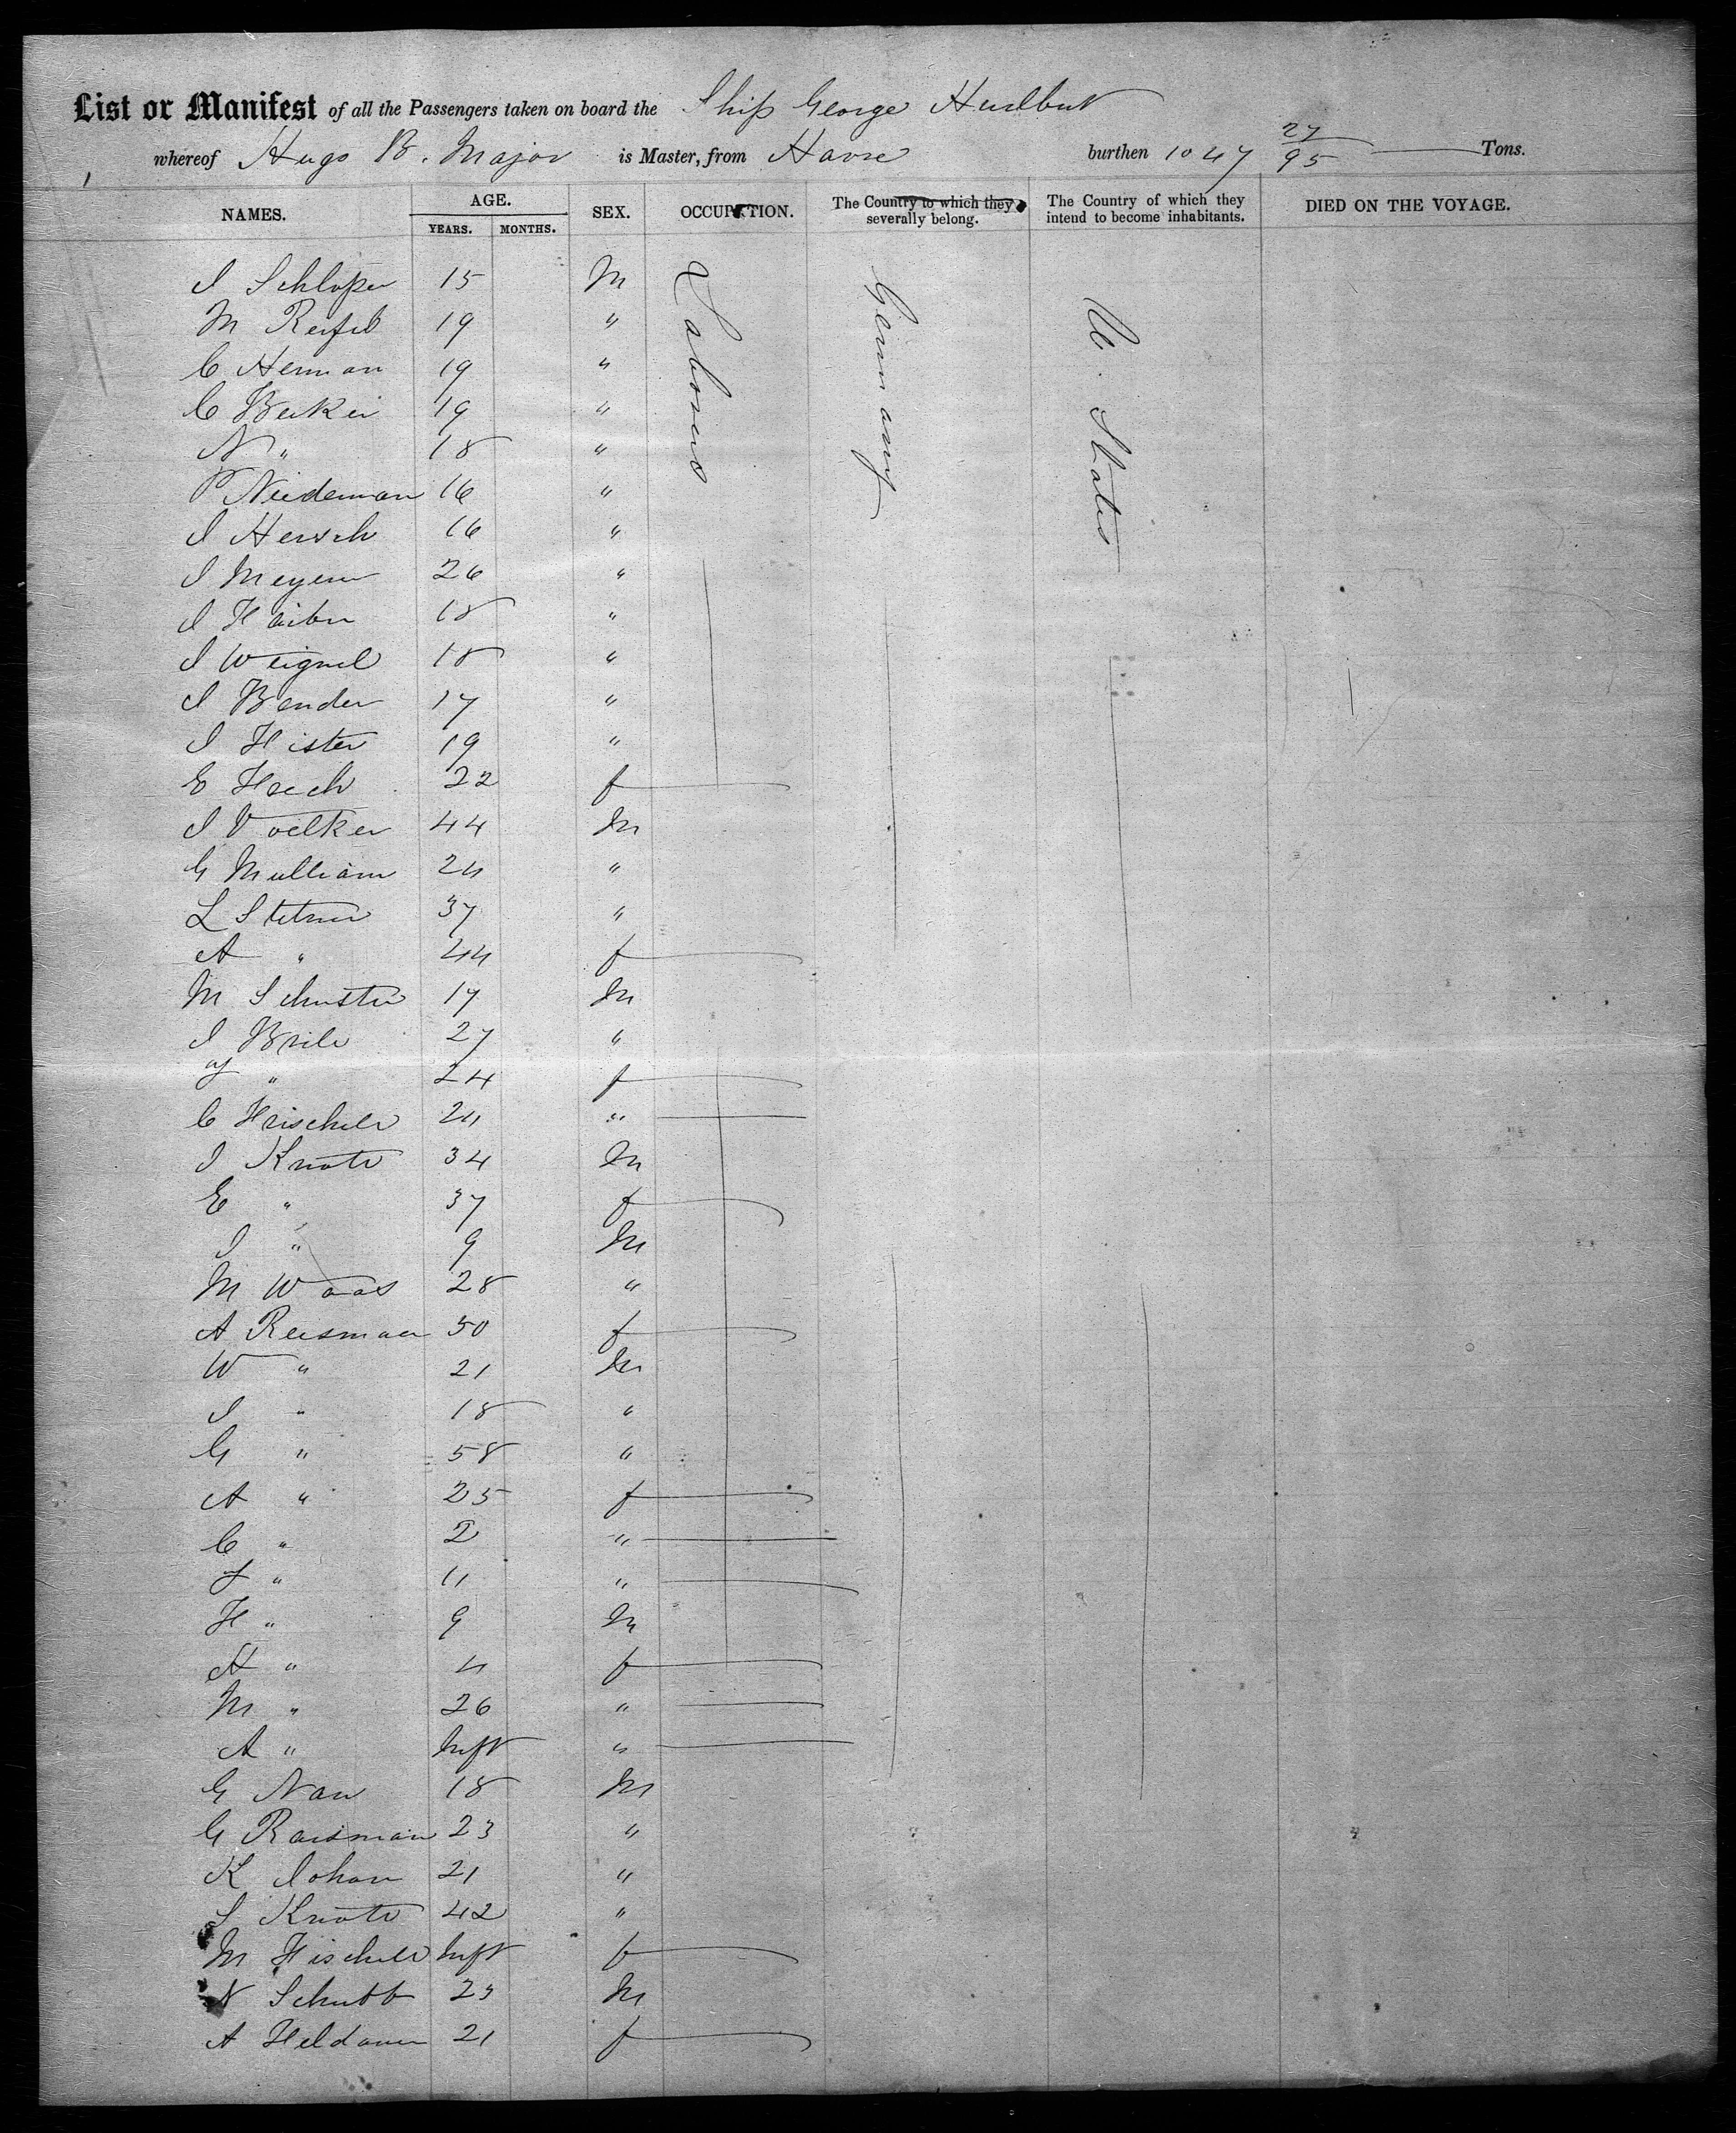 List or Manifest of all the Passengers taken on board the Ship George Hurlbut
whereof Hugo B. Major is Master, from Havre burthen 1047 27/95 Tons.
NAMES. AGE. YEARS. MONTHS. SEX. OCCUPATION. The Country to which they severally belong. The Country of which they intend to become inhabitants. DIED ON THE VOYAGE.
Labourers Germany U. States
I Schloper 15 M
M 19 "
C Herman 19 "
C Becker 19 "
N " 18 "
P Niedeman 16 "
I Hersch 16 "
I Meyer 26 "
I 18 "
I Weignel 18 "
I Bender 17 "
I Hister 19 "
E Hech 22 f
I Voelker 44 M
G Mulliam 24 "
L Stetner 37 "
A " 44 f
M Schuster 17 M
I Brile 27 "
" 24 f
C Frischele 24 "
I Knote 34 M
E " 37 f
I " 9 M
M Waas 28 "
A Reesman 50 f
W " 21 M
I " 18 "
G " 58 "
A " 25 f
C " 2 "
" 11 "
H " 9 M
A " 4 f
M " 26 "
A " Inft "
G Nau 18 M
G Raisman 23 "
K Johan 21 "
S Knote 42 "
M Fischele Inft f
N Schubb 23 M
A Heldauer 21 f